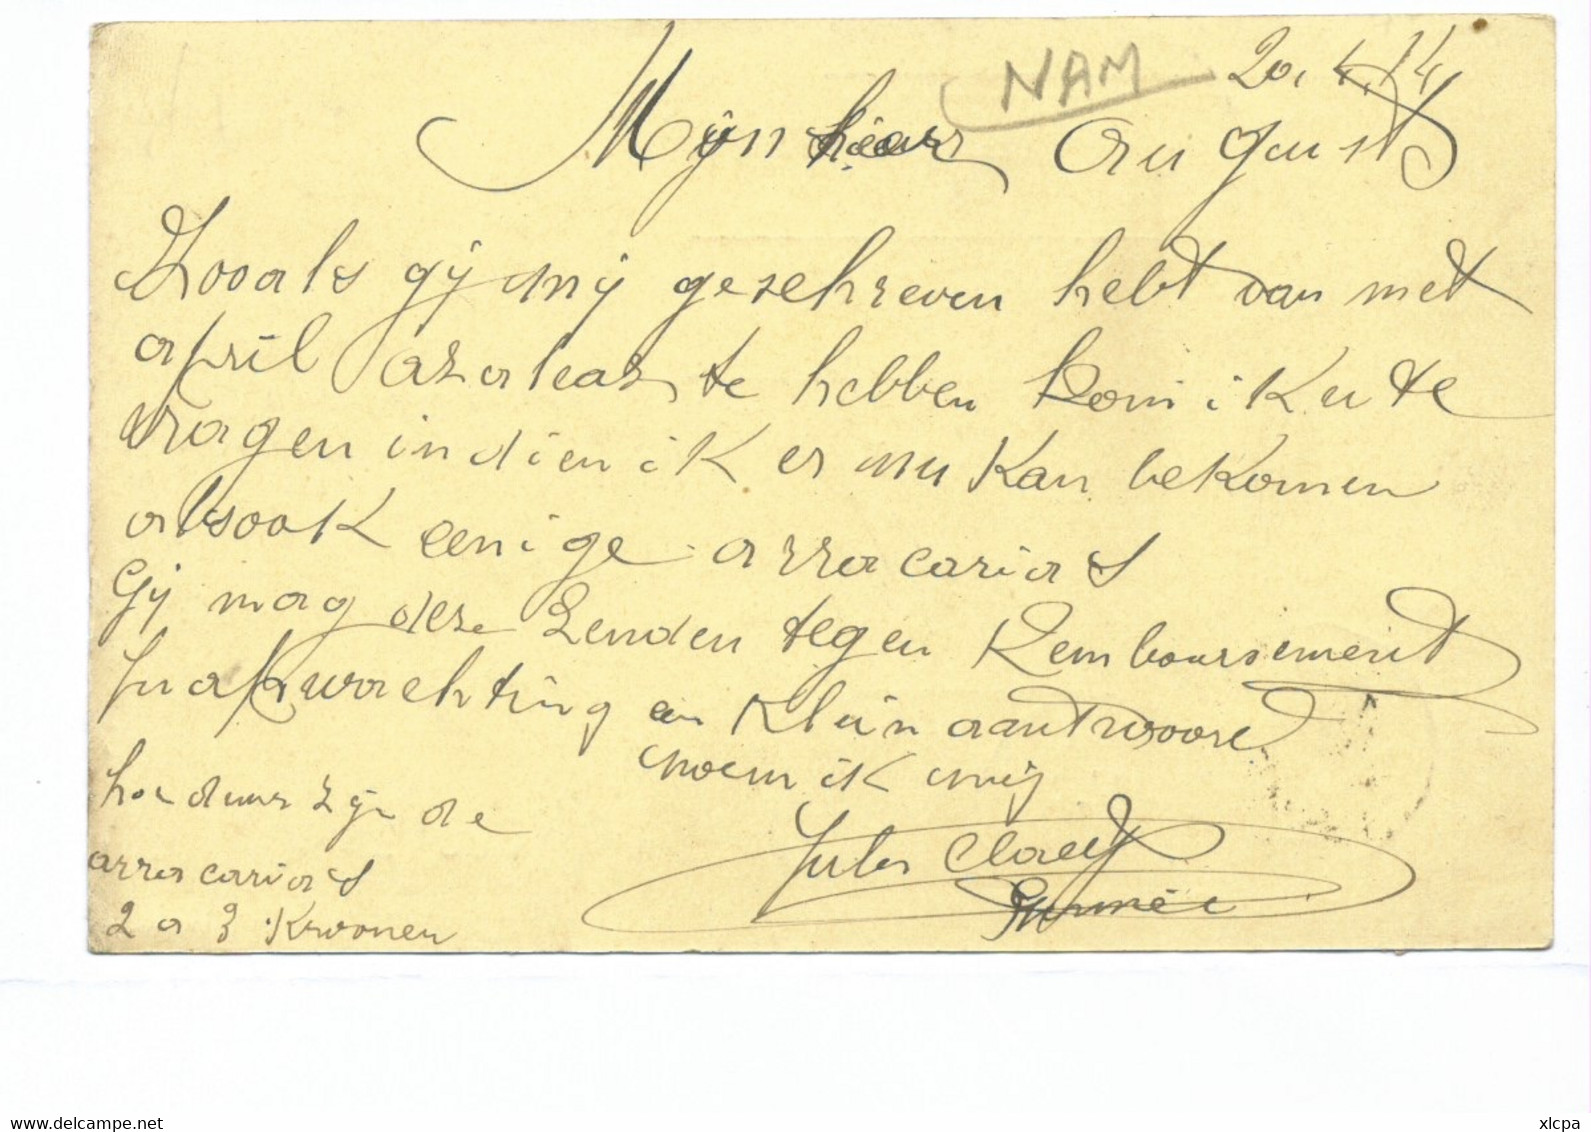 NAM 20.4.14
Mijnheer August
Zooals gij mij geschreven hebt van met
april azaleas te hebben kom ik u te
vragen indien ik er nu kan bekomen
alsook eenige arracarias
Gij mag deze zenden tegen Remboursement
In afwachting een klein aantwoord
noem ik mij
hoe duur zijn de
arracarias
2 a 3 kroonen
Jules Claeys
xlcpa
www.delcampe.net